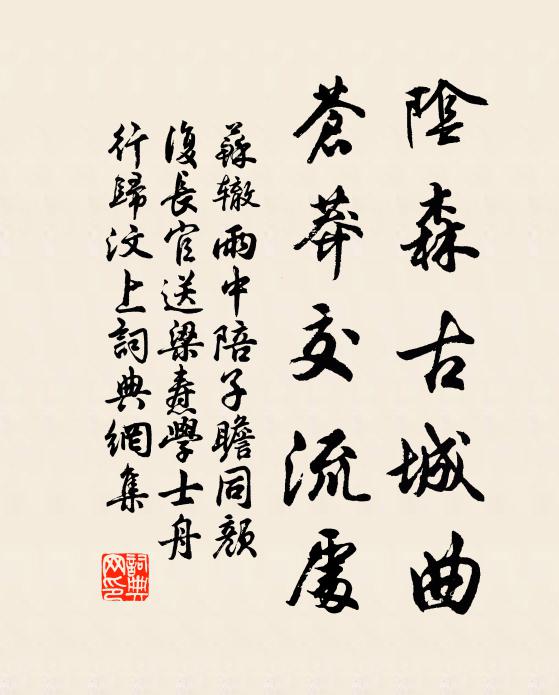 陰森古城曲
蒼莽交流處
蘇轍雨中陪子瞻同顏
復長官送梁燾學士舟
行歸汶上詞典網集
詞典
网印